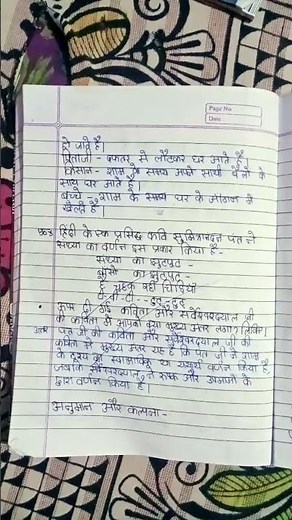 Page No.
Date
हो जाते हैं।
पिताजी - दफ्तर से लौटकर घर आते हैं।
किसान - शाम के समय अपने साथी बैलों के
साथ घर आते हैं।
बच्चे - शाम के समय घर के आंगन में
खेलते हैं।
हिंदी के एक प्रसिद्ध कवि सुमित्रानंदन पंत ने
संध्या का वर्णन इस प्रकार किया है -
संध्या का झुटपुट -
बाँसों का झुटपुट -
है चहक रही चिड़ियाँ
टी-वी-टी - टुट्-टुट्
ऊपर दी गई कविता और सर्वेश्वरदयाल जी
की कविता में आपको क्या मुख्य अंतर लगा? लिखिए।
उत्तर पंत जी की कविता और सर्वेश्वरदयाल जी की
कविता में मुख्य अंतर यह है कि पंत जी ने शाम
के दृश्य का स्वाभाविक वर्णन किया है,
जबकि सर्वेश्वरदयाल ने रूपक और उपमाओं के
द्वारा वर्णन किया है।
अनुमान और कल्पना -